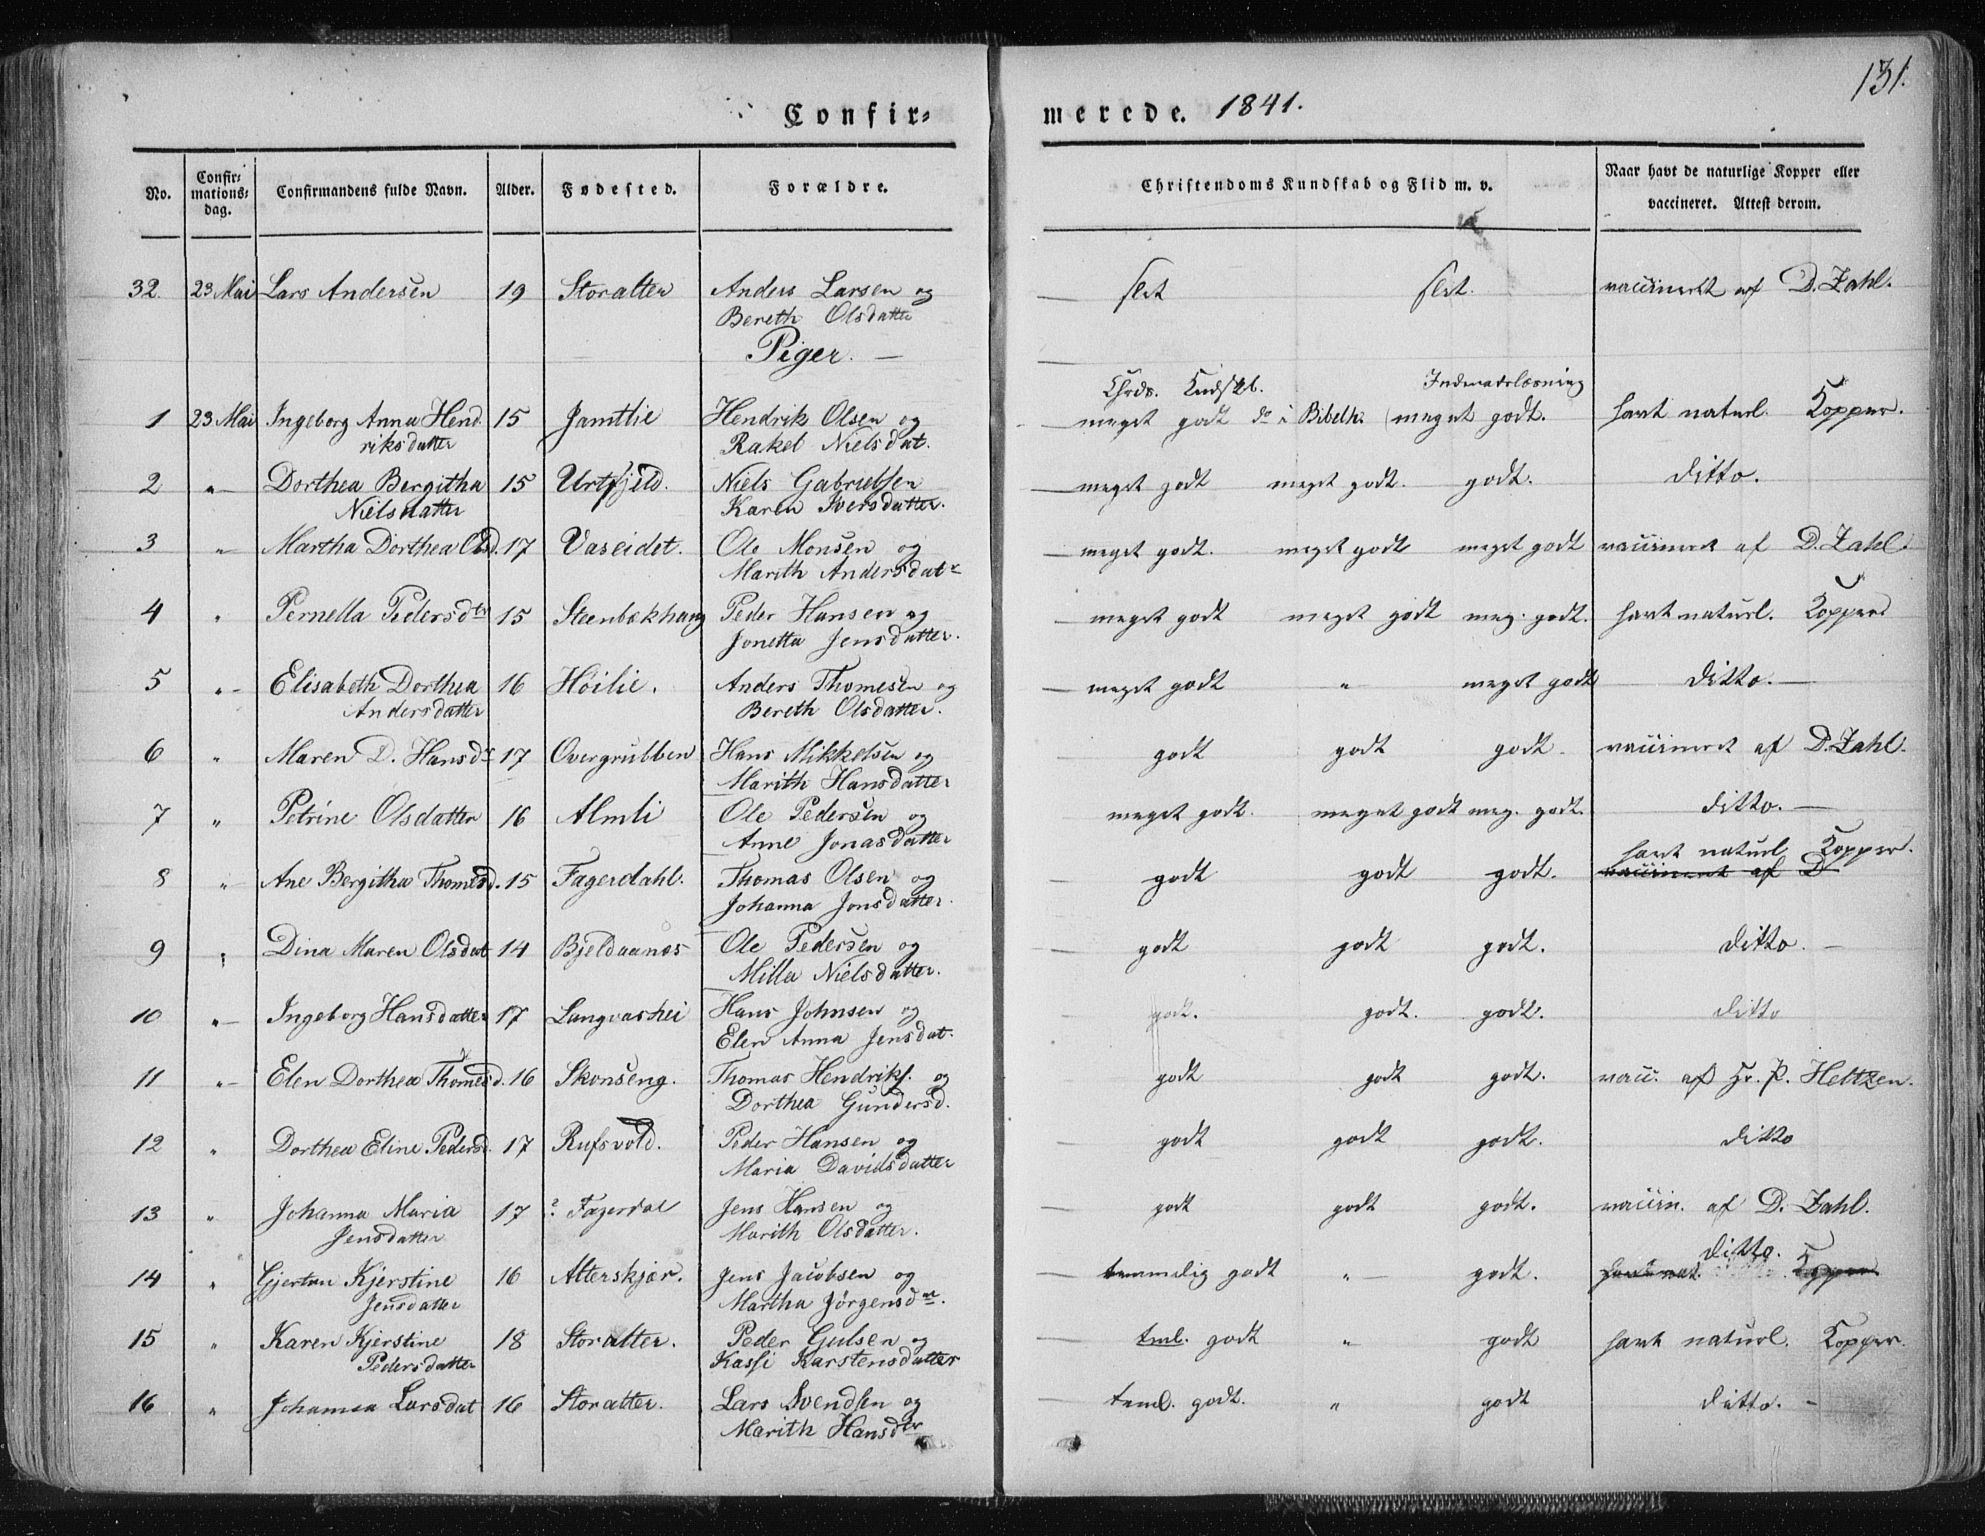 131.
Confir=
merede. 1841.
No.
Confir=
mations=
dag.
Confirmandens fulde Navn.
Alder.
Fødested.
Forældre.
Christendoms Kundskab og Flid m. v.
Naar havt de naturlige Kopper eller
vaccineret. Attest derom.
32. 23 Mai Lars Andersen 19 Storalter Anders Larsen og slet slet. vaccineret af D. Zahl.
Bereth Olsdatter
Piger. —
Chrds. Kndskb. Indenadslæsning
1 23 Mai Ingeborg Anna Hend 15 Jamtlie Hendrik Olsen og meget godt do i Bibelh. meget godt. havt naturl. Kopper.
riksdatter Rakel Nielsdat.
2 " Dorthea Bergitha 15 Urtfjeld. Niels Gabrielsen meget godt meget godt. godt. ditto.
Nielsdatter Karen Iversdatter.
3 " Martha Dorthea Olsd. 17 Vaseidet. Ole Monsen og meget godt. meget godt meget godt vaccineret af D. Zahl.
Marith Andersdatr
4 " Pernella Pedersdtr 15 Steenbækhaug Peder Hansen og meget godt meget godt meg. godt. havt naturl. Kopper
Jonetta Jensdatter.
5 " Elisabeth Dorthea 16 Höilie. Anders Thomesen og meget godt " meget godt ditto. —
Andersdatter Bereth Olsdatter.
6 " Maren D. Hansdr 17 Overgrubben Hans Mikkelsen og godt godt godt. vaccineret af D. Zahl.
Marith Hansdatter
7 " Petrine Olsdatter 16 Almli Ole Pedersen og meget godt. meget godt meg. godt. ditto. —
Anne Jonasdatter
havt naturl. Kopper.
8 " Ane Bergitha Thomesd. 15 Fagerdahl. Thomas Olsen og godt godt godt. vaccineret af D
Johanna Jonsdatter.
9 " Dina Maren Olsdat 14 Bjeldaanæs Ole Pedersen og godt godt godt. ditto. —
Milla Nielsdatter.
10 " Ingeborg Hansdatter 17 Langvashei Hans Johnsen og godt. godt. godt. ditto
Elen Anna Jensdat.
11 " Elen Dorthea Thomesd. 16 Skonseng. Thomas Hendriks. og godt godt godt. vacc. af Hr. P. Heltzen.
Dorthea Gundersd.
12 " Dorthea Eline Pedersd. 17 Rufsvold. Peder Hansen og godt godt godt. ditto
Maria Davidsdatter
13 " Johanna Maria 17 ? Fagerdal Jens Hansen og godt godt godt. vaccin. af D. Zahl.
Jensdatter Marith Olsdatter.
ditto.
14 " Gjertru Kjerstine 16 Alterskjær. Jens Jacobsen og temmelig godt " godt. havt nat. Kopper
Jensdatter Martha Jörgensdtr.
15 " Karen Kjerstine 18 Storalter. Peder Gulsen og tml. godt " godt havt naturl. Kopper.
Pedersdatter Kassi Karstensdatter
16 " Johanna Larsdat 16 Storalter. Lars Svendsen og teml. godt. " godt ditto. —
Marith Hansdtr